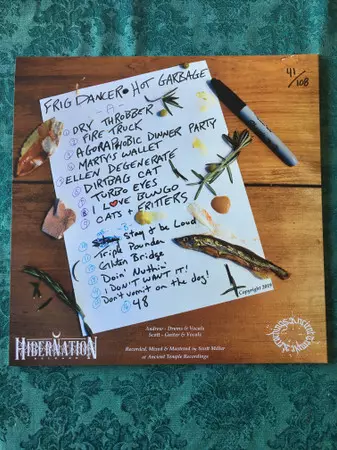 FRIG DANCER • HOT GARBAGE
41/108
-A-
① DRY THROBBER
② FIRE TRUCK
③ AGORAPHOBIC DINNER PARTY
④ MARTY'S WALLET
⑤ ELLEN DEGENERATE
⑥ DIRTBAG CAT
⑦ TURBO EYES
⑧ I LOVE BUNGO
⑨ CATS + FRITTERS
-B-
stay & be Loud
Triple Pounder
Gilded Bridge
Doin' Nuthin'
I DON'T WANT IT!
Don't vomit on the dog!
48
Copyright 2019
Andrew - Drums & Vocals
Scott - Guitar & Vocals
Recorded, Mixed & Mastered by Scott Miller
at Ancient Temple Recordings
HIBERNATION